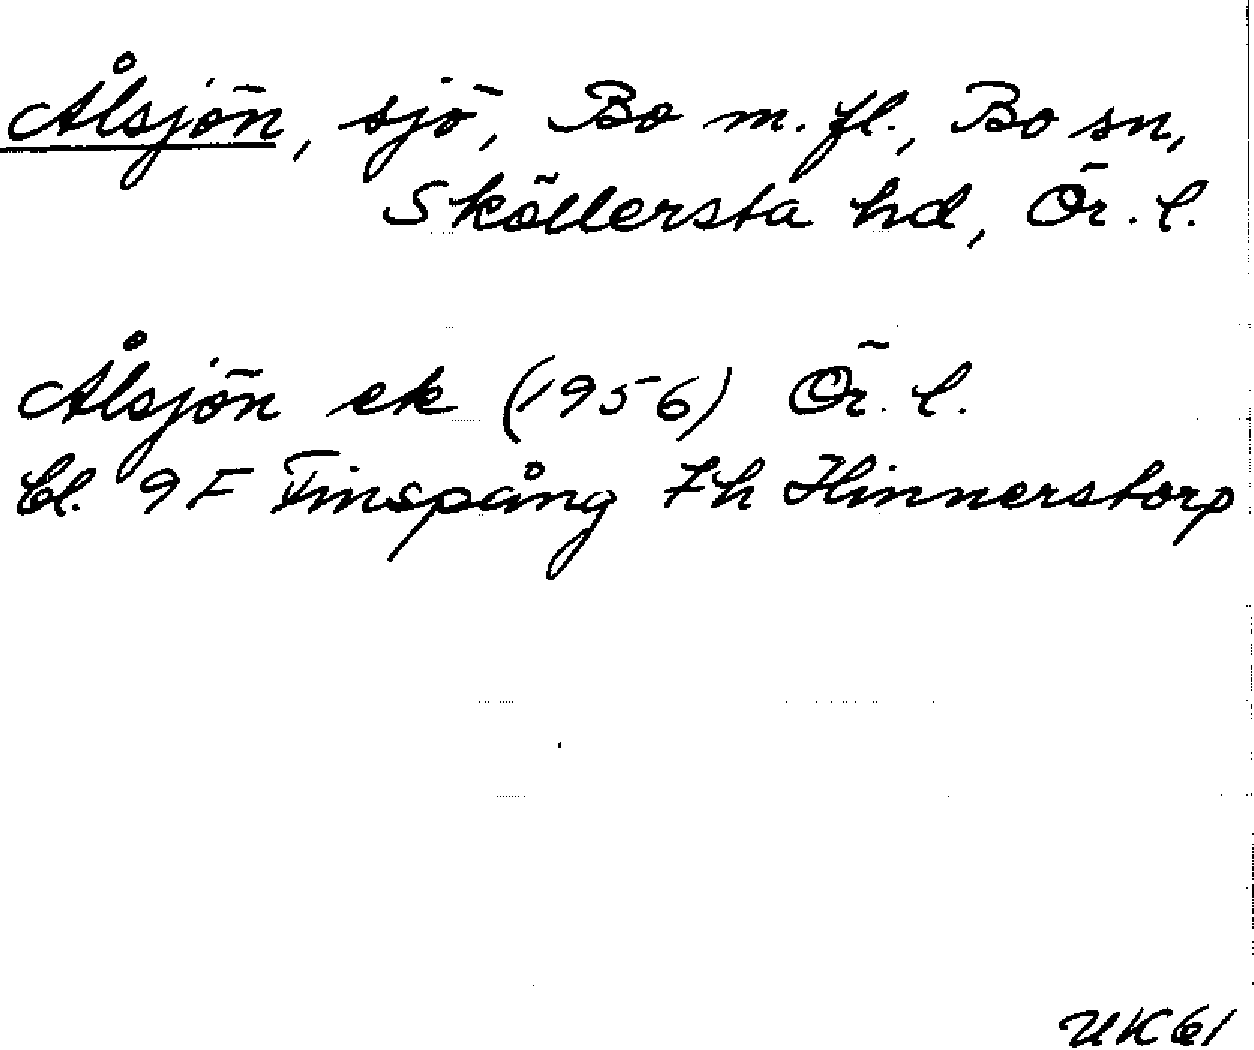 Ålsjön, sjö, Bo m. fl., Bo sn,
Sköllersta hd, Ör. l.
Ålsjön ek (1956) Ör. l.
bl. 9F Finspång 7h Hinnerstorp
UK61